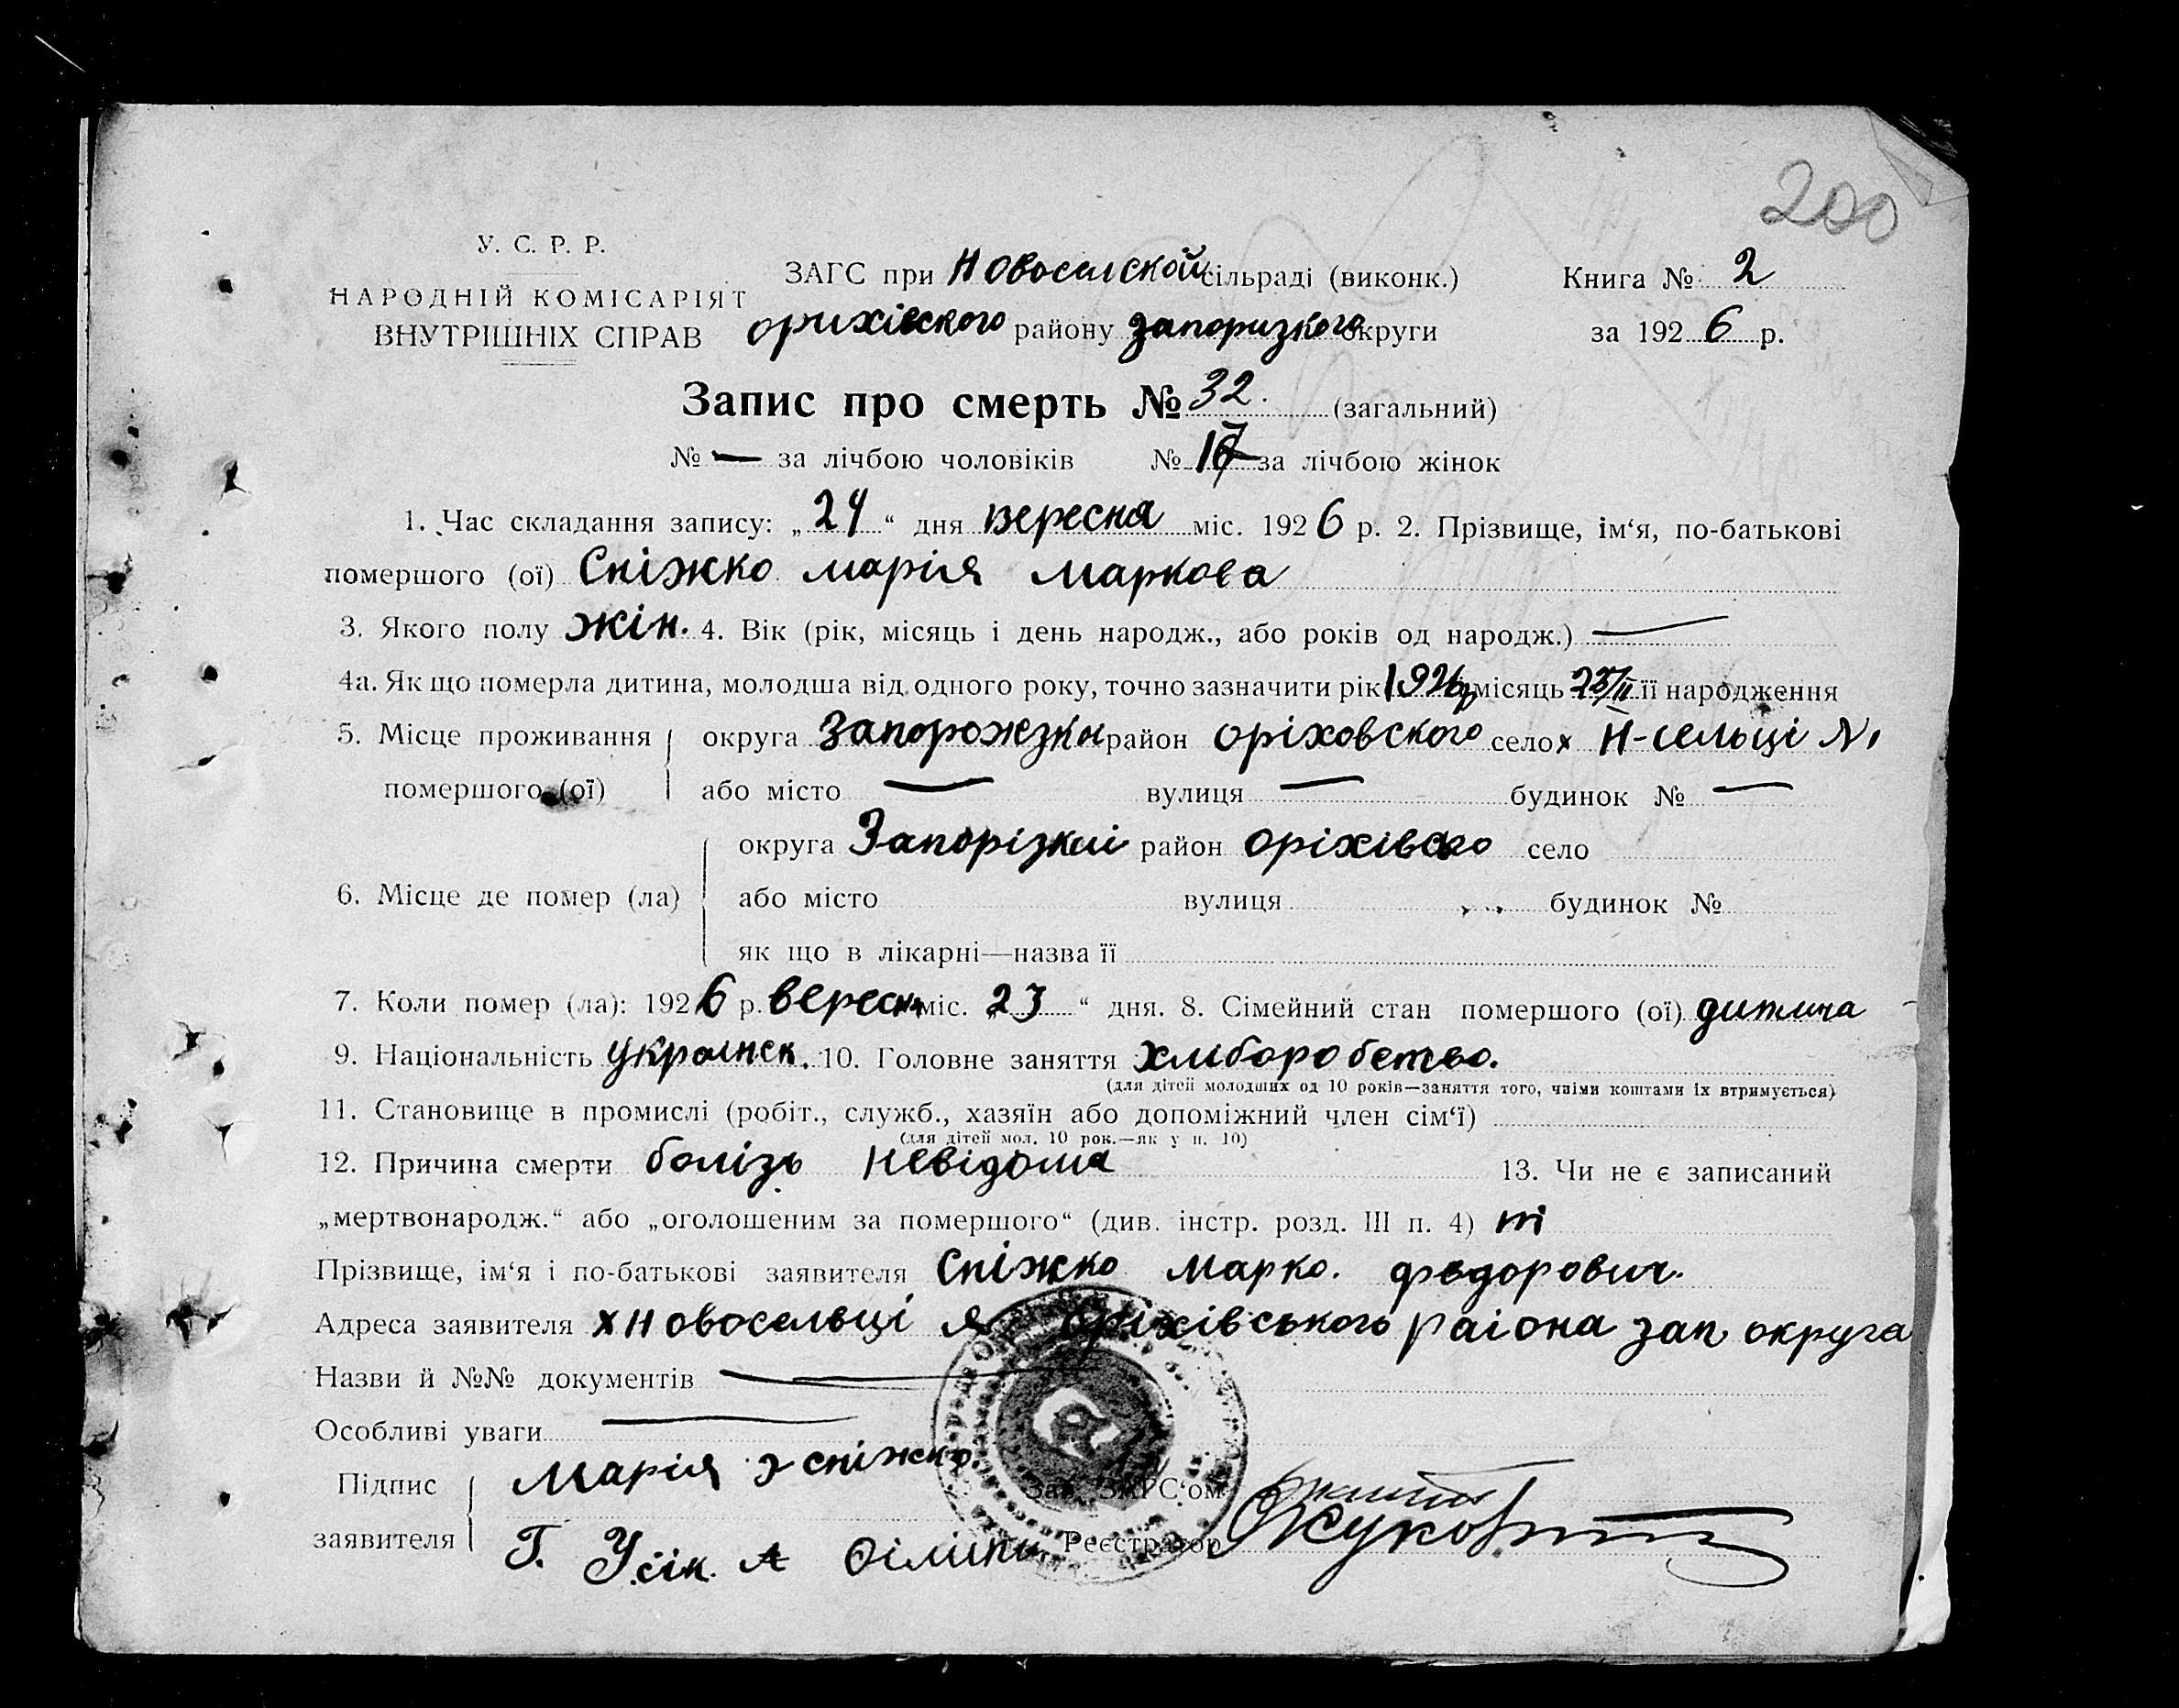 200
У. С. Р. Р.
НАРОДНІЙ КОМІСАРІЯТ
ВНУТРІШНІХ СПРАВ
ЗАГС при Новоселской сільраді (виконк.)
Книга № 2
орихівского району запоризкого округи
за 1926 р.
Запис про смерть № 32. (загальний)
№ — за лічбою чоловіків № 17 за лічбою жінок
1. Час складання запису: „24“ дня вересня міс. 1926 р. 2. Прізвище, ім‘я, по-батькові
помершого (ої) Сніжко марія Маркова
3. Якого полу жін. 4. Вік (рік, місяць і день народж., або років од народж.) —
4а. Як що померла дитина, молодша від одного року, точно зазначити рік 1926р місяць її народження
5. Місце проживання помершого (ої) округа Запорожзки район оріховского село х Н-сельці №1
або місто — вулиця — будинок № —
6. Місце де помер (ла) округа Запорізкий район оріхівого село
або місто вулиця будинок №
як що в лікарні—назва її
7. Коли помер (ла): 1926 р. вересня міс. „23“ дня. 8. Сімейний стан помершого (ої) дитина
9. Національність Україиск. 10. Головне заняття хліборобство.
(для дітей молодших од 10 років—заняття того, чиїми коштами їх втримується)
11. Становище в промислі (робіт., служб., хазяїн або допоміжний член сім‘ї)
(для дітей мол. 10 рок.—як у п. 10)
12. Причина смерти болізь невідома 13. Чи не є записаний
„мертвонародж.“ або „оголошеним за помершого“ (див. інстр. розд. III п. 4) ні
Прізвище, ім‘я і по-батькові заявителя Сніжко Марко. федорович.
Адреса заявителя х Новосельці Оріхівського раіона зап округа
Назви й №№ документів —
Особливі уваги —
Підпис заявителя Марія з сніжко
Зав. ЗАГС‘ом
Г. Усік. А Реєстратор